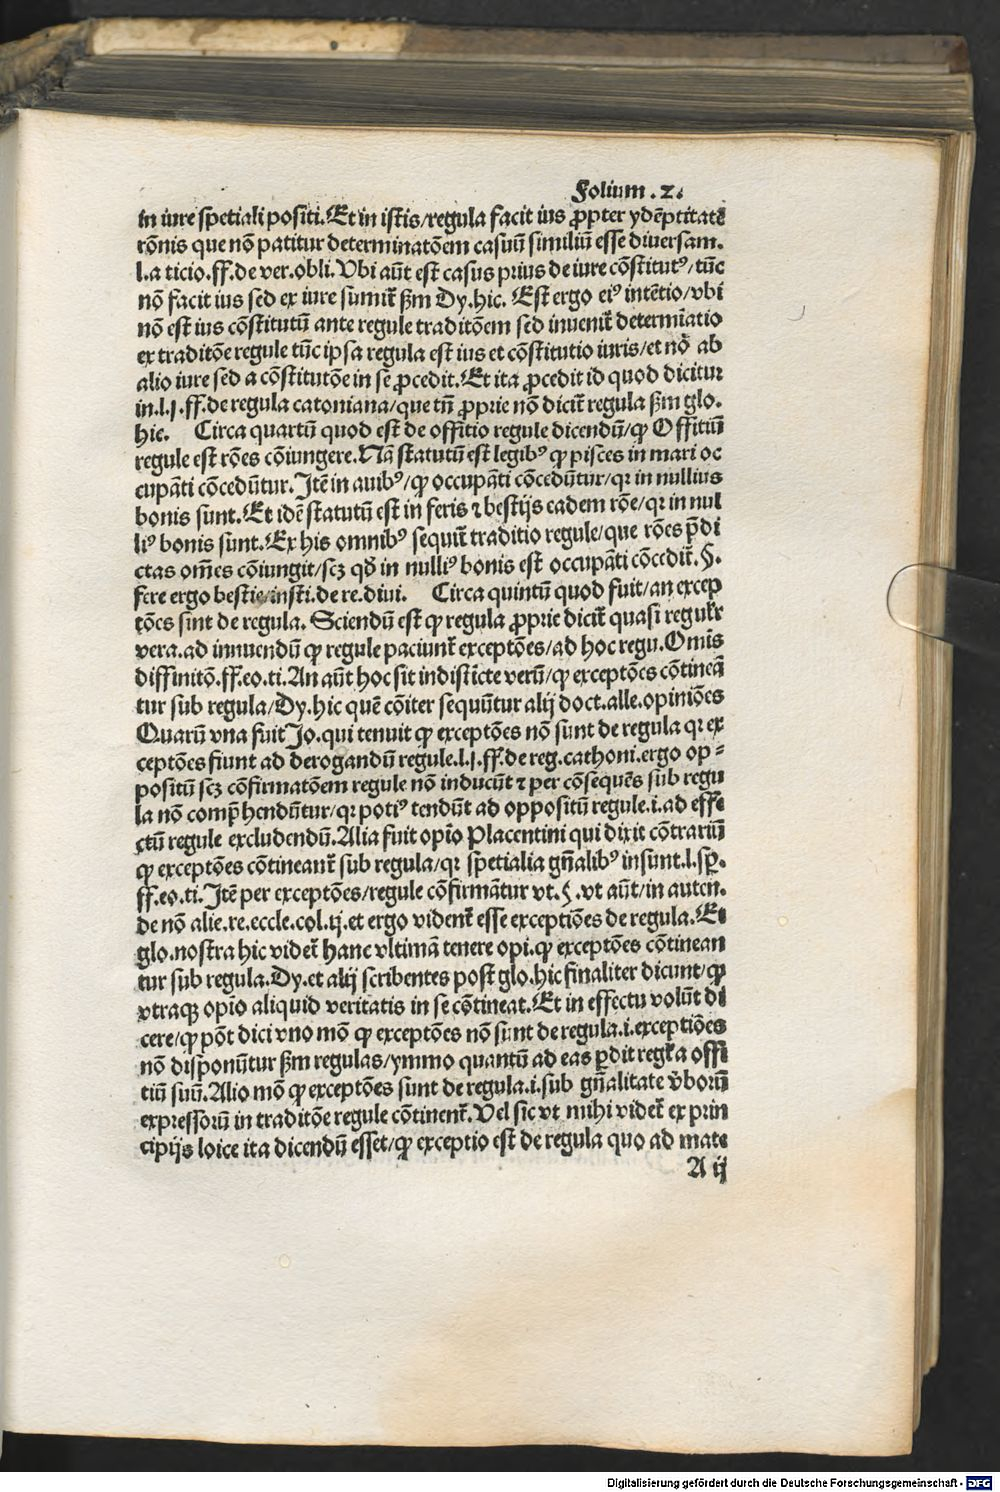 Folium .2.
in iure spetiali positi. Et in istis/regula facit ius ꝓpter ydẽptitatẽ
rõnis que nõ patitur determinatõem casuũ similiũ esse diuersam.
l.a ticio.ff.de ver.obli. Vbi aũt est casus prius de iure cõstitutꝰ/tũc
nõ facit ius sed ex iure sumit᷑ ẞm Dy.hic. Est ergo eiꝰ intẽtio/vbi
nõ est ius cõstitutũ ante regule traditõem sed inuenit᷑ determĩatio
ex traditõe regule tũc ipsa regula est ius et cõstitutio iuris/et nõ ab
alio iure sed a cõstitutõe in se ꝓcedit. Et ita ꝓcedit id quod dicitur
in.l.j.ff.de regula catoniana/que tñ ꝓprie nõ dicit᷑ regula ẞm glo.
hic. Circa quartũ quod est de offitio regule dicendũ/ꝙ Offitiũ
regule est rões cõiungere. Nã statutũ est legibꝰ ꝙ pisces in mari oc
cupãti cõcedũtur. Itẽ in auibꝰ/ꝙ occupãti cõcedũtur/qꝛ in nullius
bonis sunt. Et idẽ statutũ est in feris ⁊ bestijs eadem rõe/qꝛ in nul
liꝰ bonis sunt. Ex his omnibꝰ sequit᷑ traditio regule/que rões p̃di
ctas om̃es cõiungit/scꝫ qđ in nulliꝰ bonis est occupãti cõcedit᷑. §.
fere ergo bestie/insti.de re.diui. Circa quintũ quod fuit/an excep
tões sint de regula. Sciendũ est ꝙ regula ꝓprie dicit᷑ quasi regulr̃
vera.ad innuendũ ꝙ regule paciunt᷑ exceptões/ad hoc regu. Omis̃
diffinitõ.ff.eo.ti. An aũt hoc sit indistĩcte verũ/ꝙ exceptões cõtineã
tur sub regula/Dy.hic quẽ cõiter sequũtur alij doct.alle.opiniões
Quarũ vna fuit Jo.qui tenuit ꝙ exceptões nõ sunt de regula qꝛ ex
ceptões fiunt ad derogandũ regule.l.j.ff.de reg.cathoni.ergo op⸗
positũ scꝫ cõfirmatõem regule nõ inducũt ⁊ per cõsequẽs sub regu
la nõ comp̃hendũtur/qꝛ potiꝰ tendũt ad oppositũ regule.i.ad effe
ctũ regule excludendũ. Alia fuit opĩo Placentini qui dixit cõtrariũ
ꝙ exceptões cõtineant᷑ sub regula/qꝛ spetialia gñalibꝰ insunt.l.sꝑ.
ff.eo.ti. Itẽ per exceptões/regule cõfirmãtur vt.§.vt aũt/in auten.
de nõ alie.re.eccle.col.ij.et ergo vident᷑ esse exceptiões de regula. Et
glo.nostra hic videt᷑ hanc vltimã tenere opi.ꝙ exceptões cõtinean
tur sub regula. Dy.et alij scribentes post glo.hic finaliter dicunt/ꝙ
vtraqꝫ opĩo aliquid veritatis in se cõtineat. Et in effectu volũt di
cere/ꝙ põt dici vno mõ ꝙ exceptões nõ sunt de regula.i.exceptiões
nõ disponũtur ẞm regulas/ymmo quantũ ad eas ꝑdit regl̃a offi
tiũ suũ. Alio mõ ꝙ exceptões sunt de regula.i.sub gñalitate v̓borũ
expressorũ in traditõe regule cõtinent᷑. Vel sic vt mihi videt᷑ ex prin
cipijs loice ita dicendũ esset/ꝙ exceptio est de regula quo ad mate
A ij
Digitalisierung gefördert durch die Deutsche Forschungsgemeinschaft - DFG